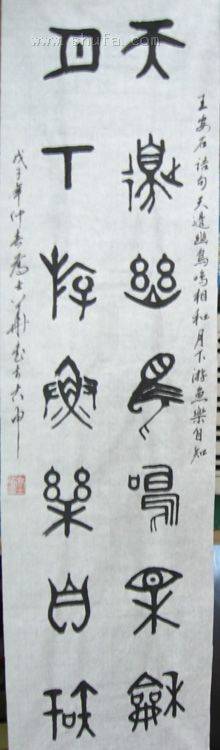 王安石诗句天邊幽鳥鳴相和月下游魚樂自知
天邊幽鳥鳴相和
月下游魚樂自知
戊子年仲春
shufa.com